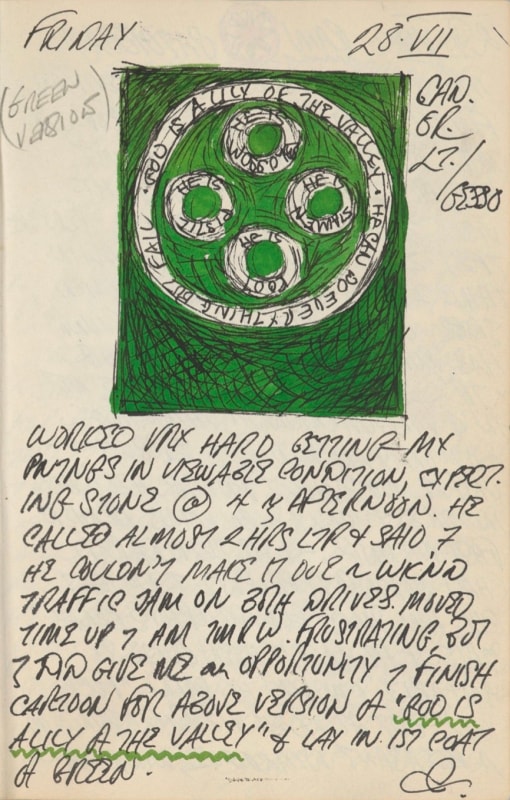 FRIDAY
28·VII
(GREEN
VERSION)
CAD.
GR.
LT./
GOD IS A LILY OF THE VALLEY · HE CAN DO EVERYTHING BUT FAIL ·
HE IS
HE IS
HE IS
HE IS
WORKED VRY HARD GETTING MY
PNTINGS IN VIEWABLE CONDITION, EXPECT-
ING STONE @ 4 AFTERNOON. HE
CALLED ALMOST 2 HRS LTR & SAID
HE COULDN'T MAKE IT DUE WKND
TRAFFIC JAM ON DRIVES. MOVED
TIME UP AM TMRW. FRUSTRATING, BUT
DID GIVE ME an OPPORTUNITY FINISH
CARTOON FOR ABOVE VERSION of "GOD IS
A LILY of THE VALLEY" & LAY IN 1ST COAT
of GREEN.